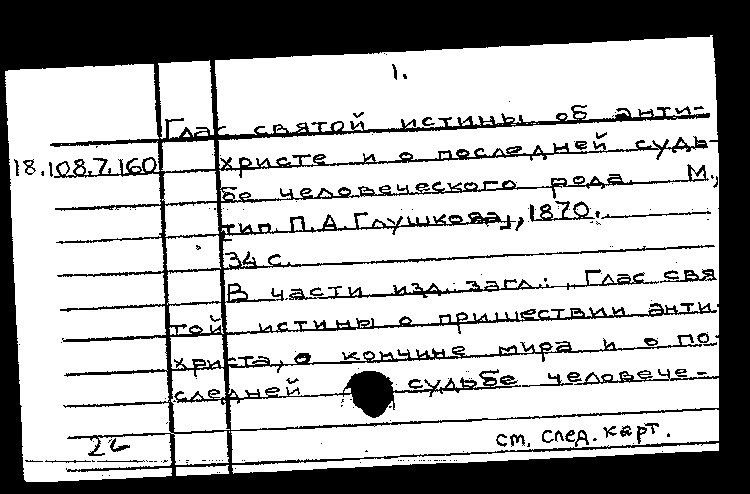 1.
Глас святой истины об анти-
18.108.7.160 христе и о последней судь-
бе человеческого рода. М.,
тип. П.А. Глушкова, 1870.
34 с.
В части изд. загл.: Глас свя
той истины о пришествии анти-
христа, о кончине мира и о по-
следней судьбе человече-
22 см. след. карт.